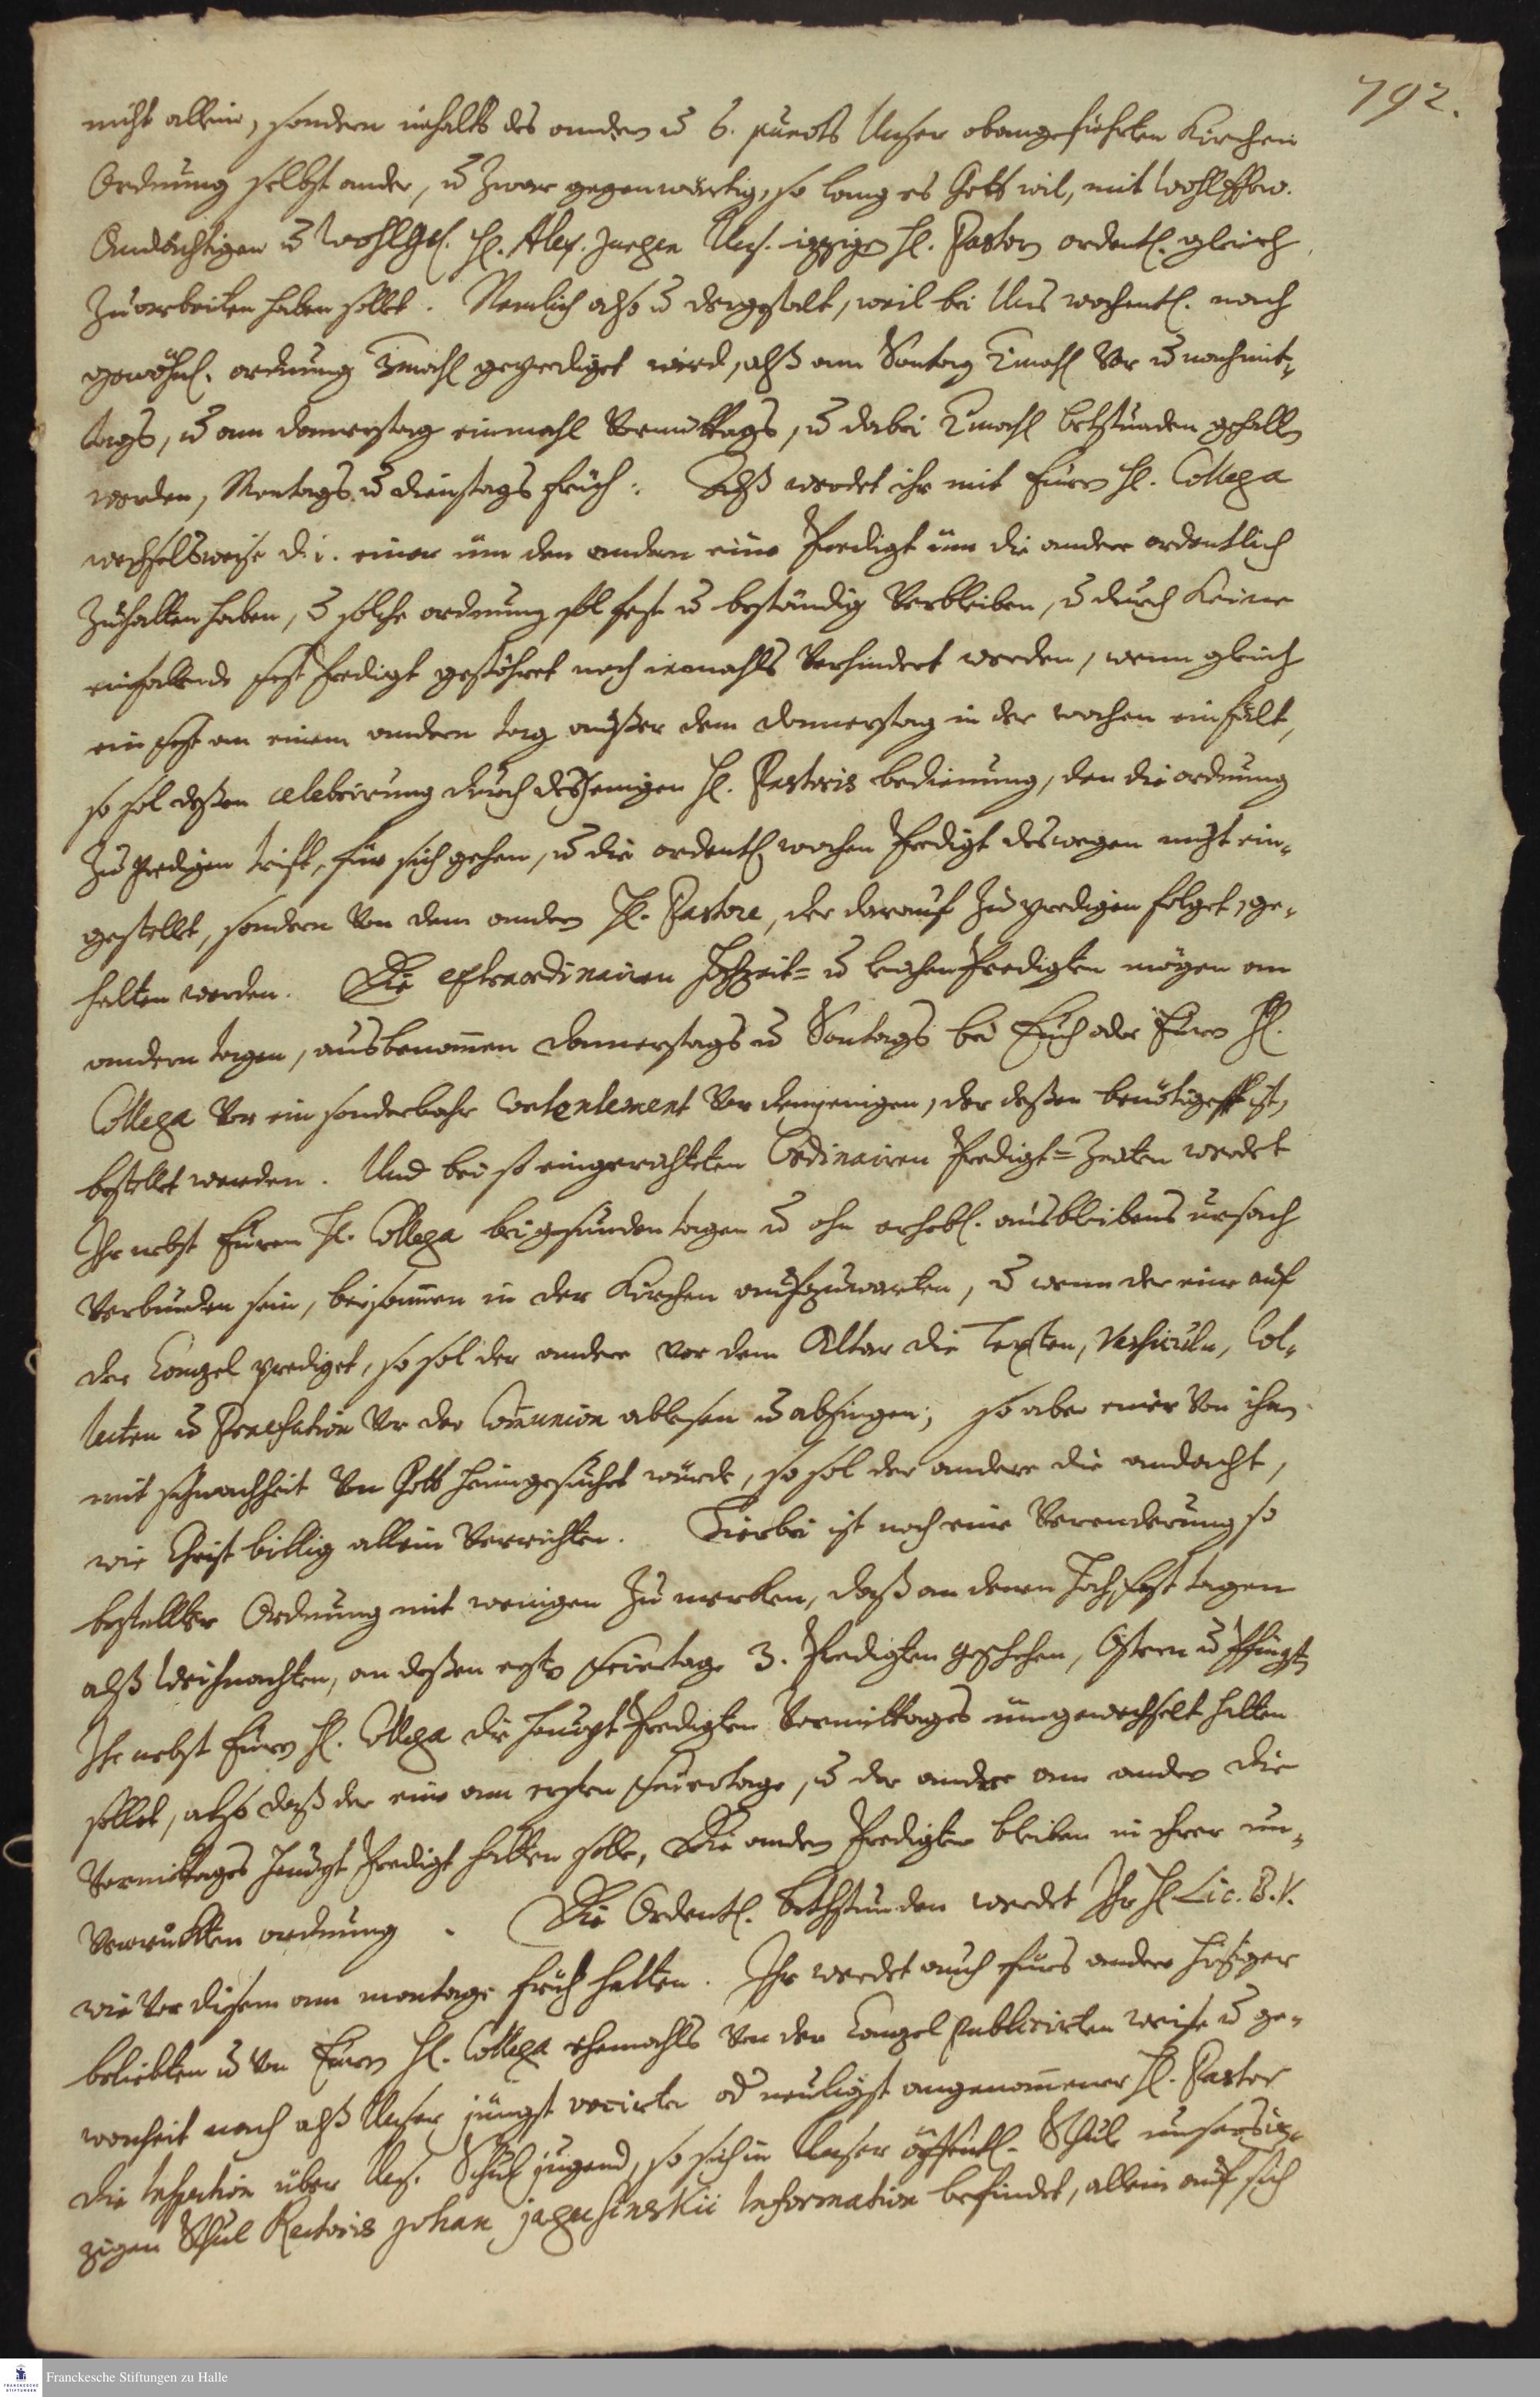 792.
nicht allein, sondern inhalts des andern u 6. puncts Unser obangeführten Kirchen
Ordnung selbst ander, u zwar gegenwärtig, so lang es Gott wil, mit WohlEhrw.
Andächtigen u Wohlgel. H. Alex. Uns. itzigen H. Pastor ordentl. gleich
zuarbeiten haben sollet. Nemlich also u dergestalt, weil bei Uns wochentl. nach
gewöhnl. ordnung 3mahl geprediget wird, alß am Sontag 2mahl Vor u nachmit-
tags, u am donnerstag einmahl Vormittags, u dabei 2mahl betstunden gehalten
werden, Montags u dienstags früh: Alß werdet ihr mit Eurem H. Collega
wechselsweise d. i. einer üm den andern eine Predigt üm die andere ordentlich
zuhalten haben, u solche ordnung sol fest u beständig Verbleiben, u durch Keine
einfallende fest Predigt gestöhret noch iemahls Verhindert werden, wenn gleich
ein fest an einem andern tag außer dem donnerstag in der wochen einfält,
so sol deßen celebrirung durch desjenigen H. Pastoris bedienung, den die ordnung
zu predigen trift, für sich gehen, u die ordentl wochen Predigt deswegen nicht ein-
gestellet, sondern Von dem andern H. Pastore, der darauf zu predigen folget, ge-
halten werden. Die extraordinairen Hochzeit- u leichen Predigten mögen an
andern tagen, ausbenom̃en donnerstags u Sontags bei Euch oder Eurem H.
Collega Vor ein sonderbahr Contentement Von demjenigen, der deßen benötiget ist,
bestellet werden. Und bei so eingerichteten Ordinairen Predigt-Zeiten werdet
Ihr nebst Eurem H. Collega bei gesunden tagen u ohn erhebl. ausbleibens ursach
Verbunden sein, beisam̃en in der Kirchen aufzuwarten, u wenn der eine auf
der Canzel prediget, so sol der andere vor dem Altar die Texten, Versiculn, Col-
lecten u Praefation Vor der Com̃union ablesen u absingen; so aber einer Von ihnen
mit schwachheit Von Gott heimgesuchet würde, so sol der andere die andacht,
wie Christ billig allein Verrichten. Hierbei ist noch eine Verenderung so
bestellter Ordnung mit wenigen zu merken, daß an denen Hoch fest tagen
alß Weihnachten, an deßen erstem feiertage 3. Predigten geschehen, Ostern u Pfingsten
Ihr nebst Eurem H. Collega die Haupt Predigten Vormittages ümgewechselt halten
sollet, also daß der eine am ersten feiertage, u der andere am andern die
Vormittages Haupt Predigt halten solle, Die andern Predigten bleiben in ihrer un-
Verrükten ordnung. Die Ordentl. Bethstunden werdet Ihr H Lic. B. V.
wie Vor diesem am montage früh halten. Ihr werdet auch fürs andere hiesiger
beliebten u Von Eurem H. Collega ehemahls Von der Canzel publicirten weise u ge-
wonheit nach alß Unser jüngst vocirter od neuligst angenom̃ener H. Pastor
die Inspection über Uns. Schul jugend, so sich in Unser öffentl. Schul unsers it-
zigen Schul Rectoris Johan Jaguschinskii Information befindet, allein auf sich
Franckesche Stiftungen zu Halle